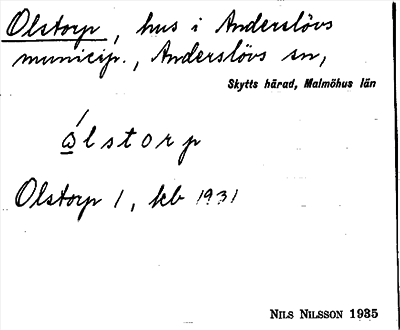 Olstorp, hus i Anderslövs
municip., Anderslövs sn,
Skytts härad, Malmöhus län
ólstorp
Olstorp 1, kb 1931
NILS NILSSON 1935